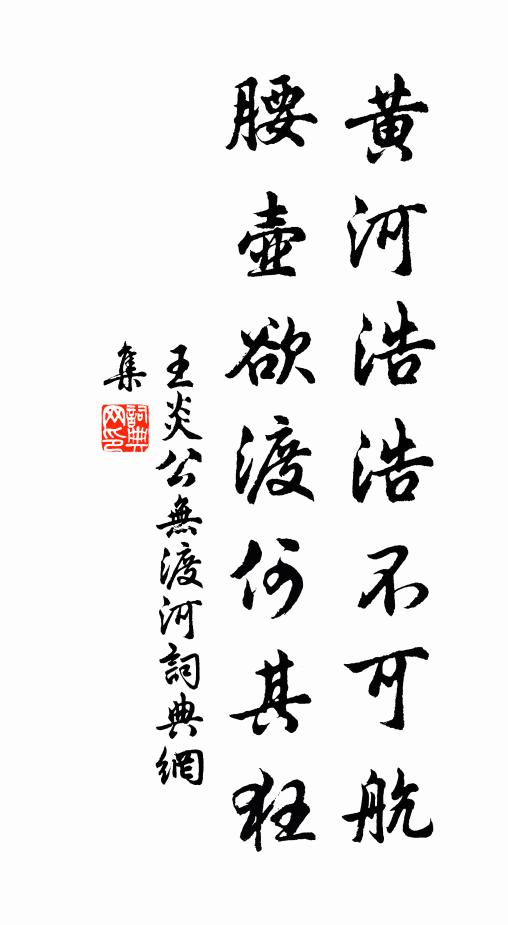 黄河浩浩不可航
腰壺欲渡何其狂
王炎公無渡河詞典網
集
詞典网印